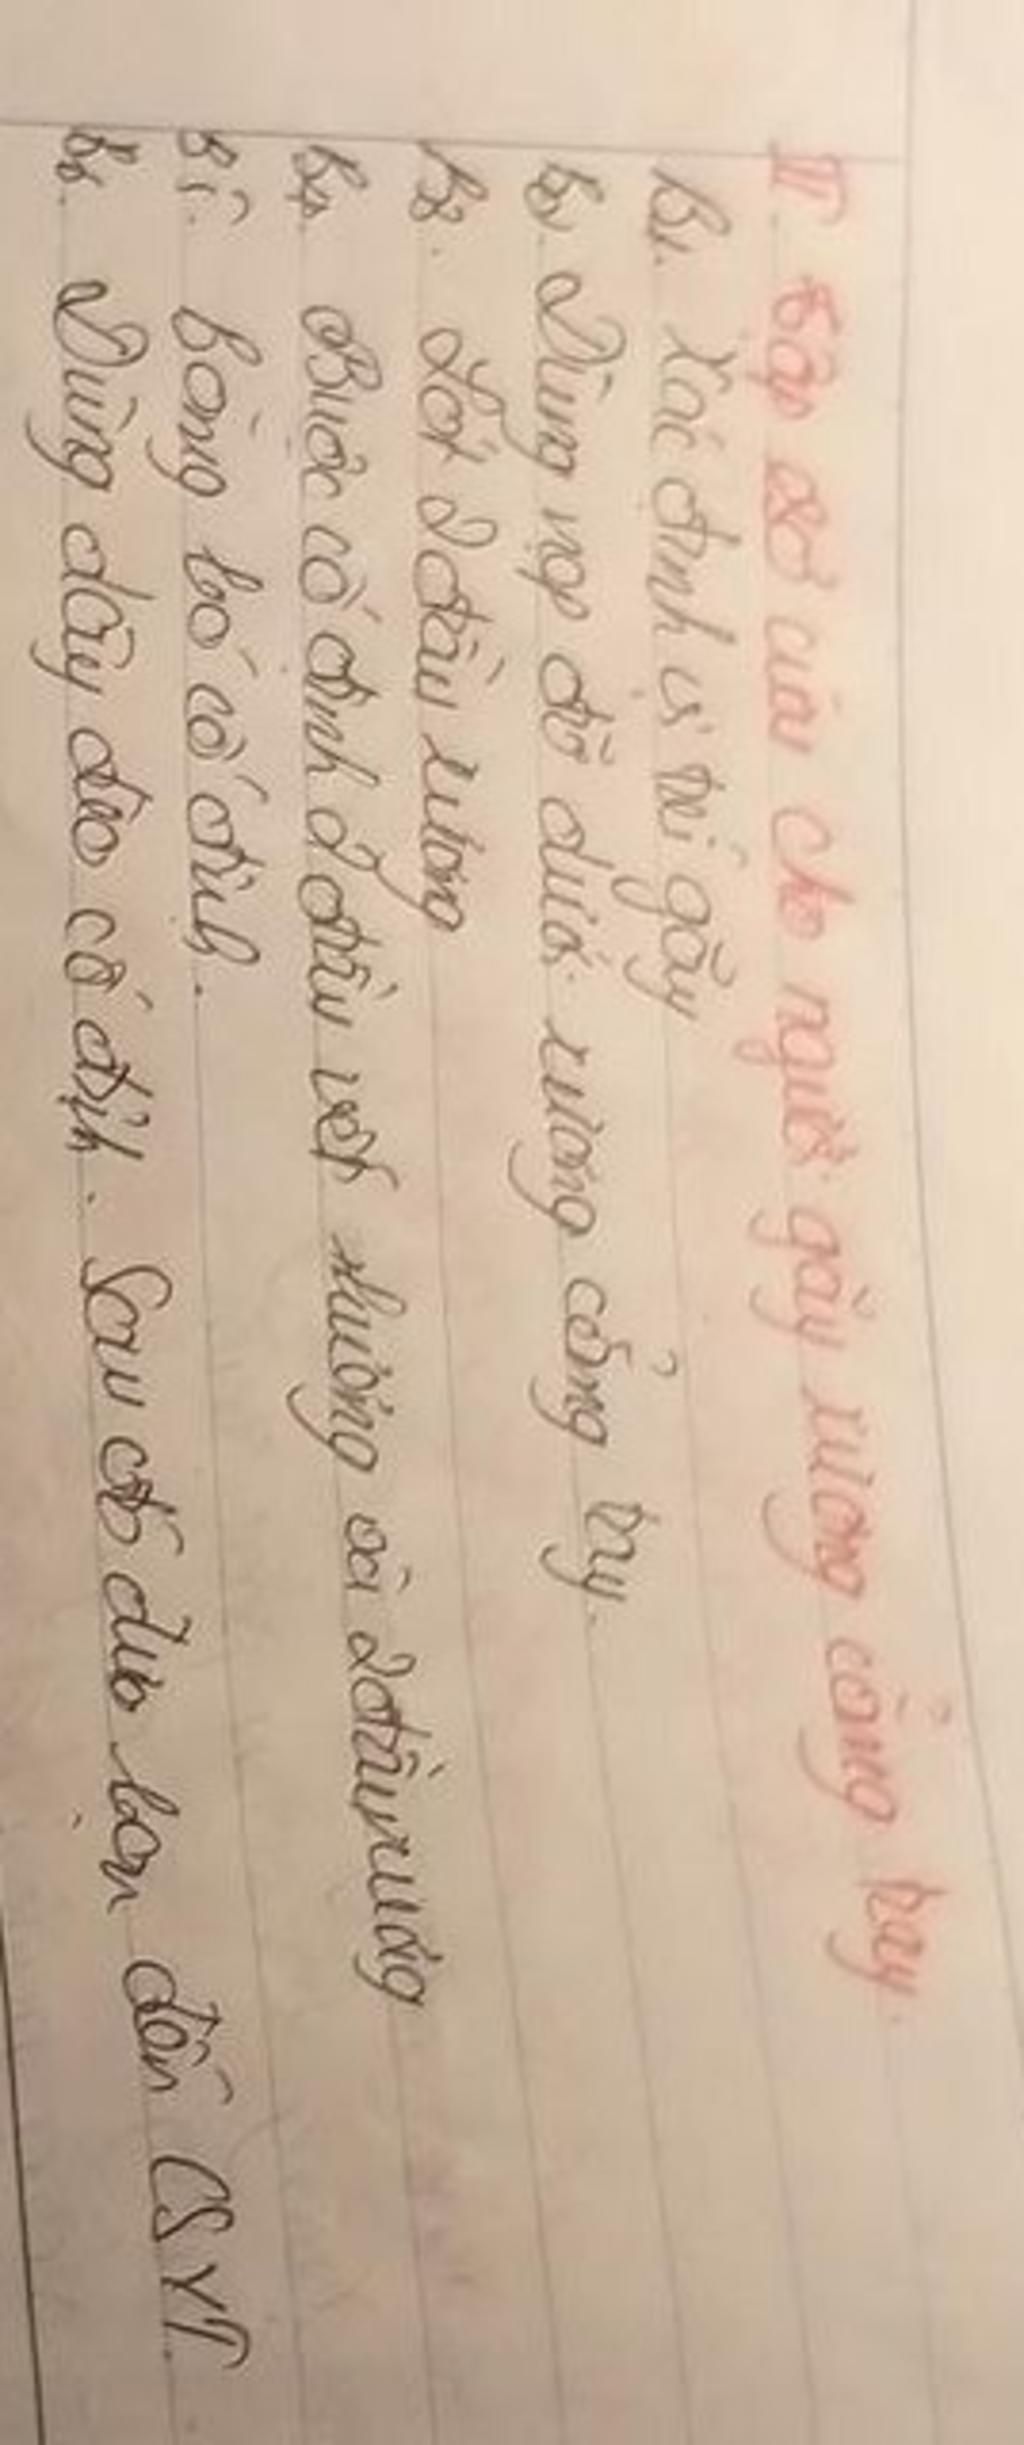 II. Cấp sơ cứu cho người gãy xương cẳng tay.
B1. Xác định vị trí gãy
B2. Dùng nẹp đỡ dưới xương cẳng tay.
B3. Lót 2 đầu xương
B4. Buộc cố định 2 đầu vết thương và 2 đầu xương
B5. Băng bó cố định.
B6. Dùng dây đeo cố định. Sau đó đưa lên đến CSYT.